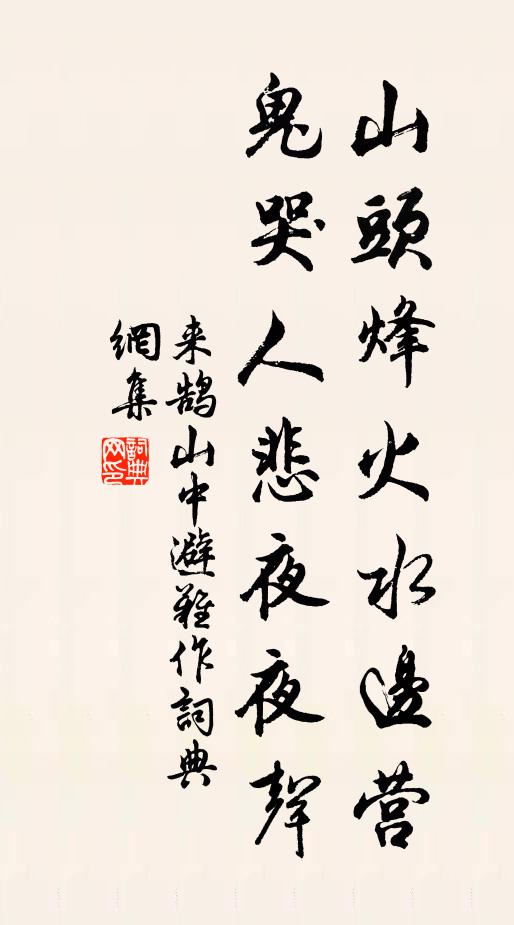 山頭烽火水邊营
鬼哭人悲夜夜聲
来鹄山中避難作詞典
網集
詞典
网印